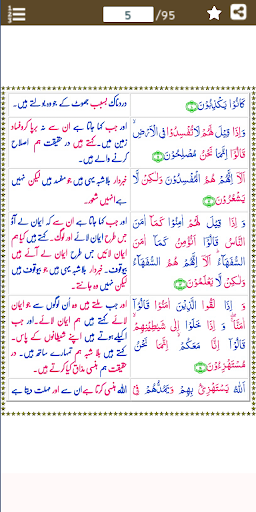 5 /95
كَانُوۡا يَكۡذِبُوۡنَ
دردناک بسبب جھوٹ کے جو وہ بولتے ہیں۔
وَاِذَا قِيۡلَ لَهُمۡ لَا تُفۡسِدُوۡا فِى الۡاَرۡضِۙ
قَالُوۡآ اِنَّمَا نَحۡنُ مُصۡلِحُوۡنَ
اور جب کہا جاتا ہے ان سے نہ برپا کرو فساد
زمین میں۔ کہتے ہیں در حقیقت ہم اصلاح
کرنے والے ہیں۔
اَلَاۤ اِنَّهُمۡ هُمُ الۡمُفۡسِدُوۡنَ وَلٰـكِنۡ لَّا
يَشۡعُرُوۡنَ
خبردار بلاشبہ یہی ہیں جو مفسد ہیں لیکن نہیں
ہے انہیں شعور۔
وَ اِذَا قِيۡلَ لَهُمۡ اٰمِنُوۡا كَمَاۤ اٰمَنَ
النَّاسُ قَالُوۡآ اَنُؤۡمِنُ كَمَاۤ اٰمَنَ
السُّفَهَآءُ ؕ اَلَاۤ اِنَّهُمۡ هُمُ السُّفَهَآءُ
وَلٰـكِنۡ لَّا يَعۡلَمُوۡنَ
اور جب کہا جاتا ہے ان سے کہ ایمان لے آؤ
جس طرح ایمان لائے اور لوگ۔ کہتے ہیں کیا ہم
ایمان لائیں جس طرح ایمان لے آئے ہیں
بیوقوف۔ خبردار بلاشبہ یہی ہیں جو بیوقوف ہیں
لیکن نہیں وہ جانتے۔
وَ اِذَا لَقُوا الَّذِيۡنَ اٰمَنُوۡا قَالُوۡآ
اٰمَنَّا ۖۚ وَ اِذَا خَلَوۡا اِلٰى شَيٰطِيۡنِهِمۡۙ
قَالُوۡآ اِنَّا مَعَكُمۡۙ اِنَّمَا نَحۡنُ
مُسۡتَهۡزِءُوۡنَ
اور جب ملتے ہیں وہ ان لوگوں سے جو ایمان
لائے۔ کہتے ہیں ہم ایمان لائے۔ اور جب
اکیلے ہوتے ہیں اپنے شیطانوں کے پاس۔
کہتے ہیں بلا شبہ ہم تمہارے ساتھ ہیں۔ در
حقیقت ہم ہنسی مذاق کیا کرتے ہیں۔
اَللّٰهُ يَسۡتَهۡزِئُ بِهِمۡ وَيَمُدُّهُمۡ فِىۡ
اللہ ہنسی کرتا ہے ان سے اور مہلت دیتا ہے